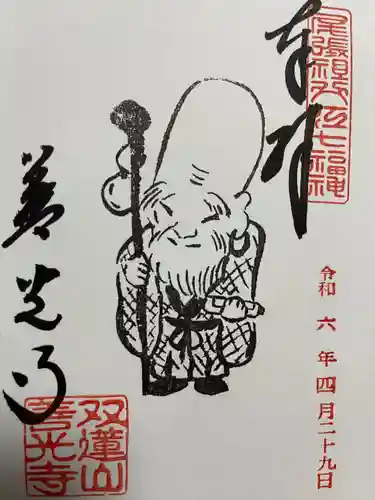 奉拝
尾張稲沢七福神
令和 六 年 四 月 二十九日
善光寺
双蓮山
善光寺